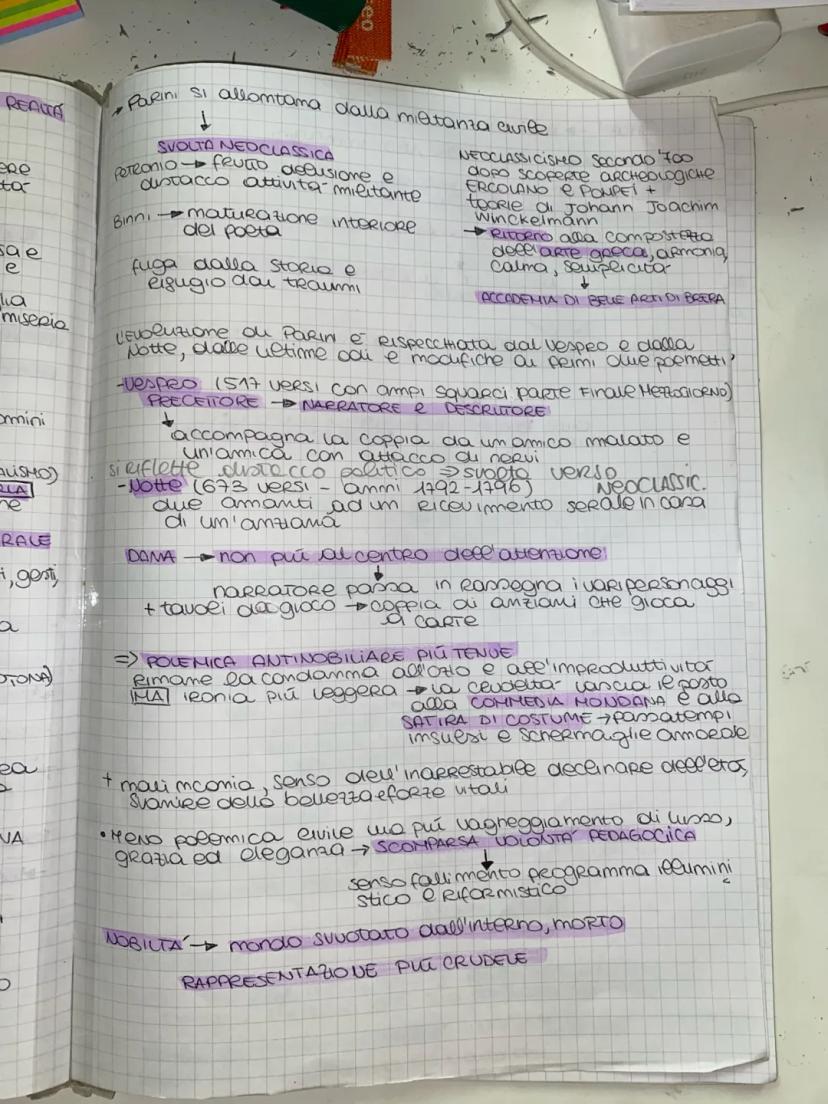 REALTÀ
ERE
sa e
e
miseria
omini
RALE
i, gesti,
a
ea
VA
→ PARINI SI allontana dalla militanza civile
↓
SVOLTA NEOCLASSICA
PETRONIO → FRUTTO delusione e
distacco attività militante
Binni → maturazione interiore
del poeta
fuga dalla storia e
rifugio dai traumi
NEOCLASSICISMO secondo '700
dopo SCOPERTE ARCHEOLOGICHE
ERCOLANO e POMPEI +
teorie di Johann Joachim
Winckelmann
→ RITORNO alla compostezza
dell'ARTE greca, armonia,
calma, semplicità
↓
ACCADEMIA DI BELLE ARTI DI BRERA
L'EVOLUZIONE di PARINI È RISPECCHIATA dal VESPRO e dalla
Notte, dalle ultime odi e modifiche ai primi due poemetti
-VESPRO (517 VERSI con ampi squarci parte Finale MEZZOGIORNO)
PRECETTORE → NARRATORE e DESCRITTORE
↓
accompagna la coppia da un amico malato e
un'amica con attacco di nervi
si riflette distacco politico ⇒ svolta verso
NEOCLASSIC.
-Notte (673 versi - anni 1792-1796)
due amanti ad un ricevimento serale in casa
di un'anziana
DAMA → non più al centro dell'attenzione
↓
NARRATORE passa in rassegna i vari personaggi
+ tavoli da gioco → coppia di anziani che gioca
a carte
=> POLEMICA ANTINOBILIARE PIÙ TENUE
Rimane la condanna all'ozio e all'improduttività
MA ironia più leggera → la crudeltà lascia il posto
alla COMMEDIA MONDANA e alla
SATIRA DI COSTUME → passatempi
insulsi e schermaglie amorose
+ malinconia, senso dell'inarrestabile declinare dell'età,
svanire della bellezza e forze vitali
• Meno polemica civile ma più vagheggiamento di lusso,
grazia ed eleganza → SCOMPARSA VOLONTÀ PEDAGOGICA
↓
senso fallimento programma illumini
stico e riformistico
NOBILTÀ → mondo svuotato dall'interno, MORTO
RAPPRESENTAZIONE PIÙ CRUDELE